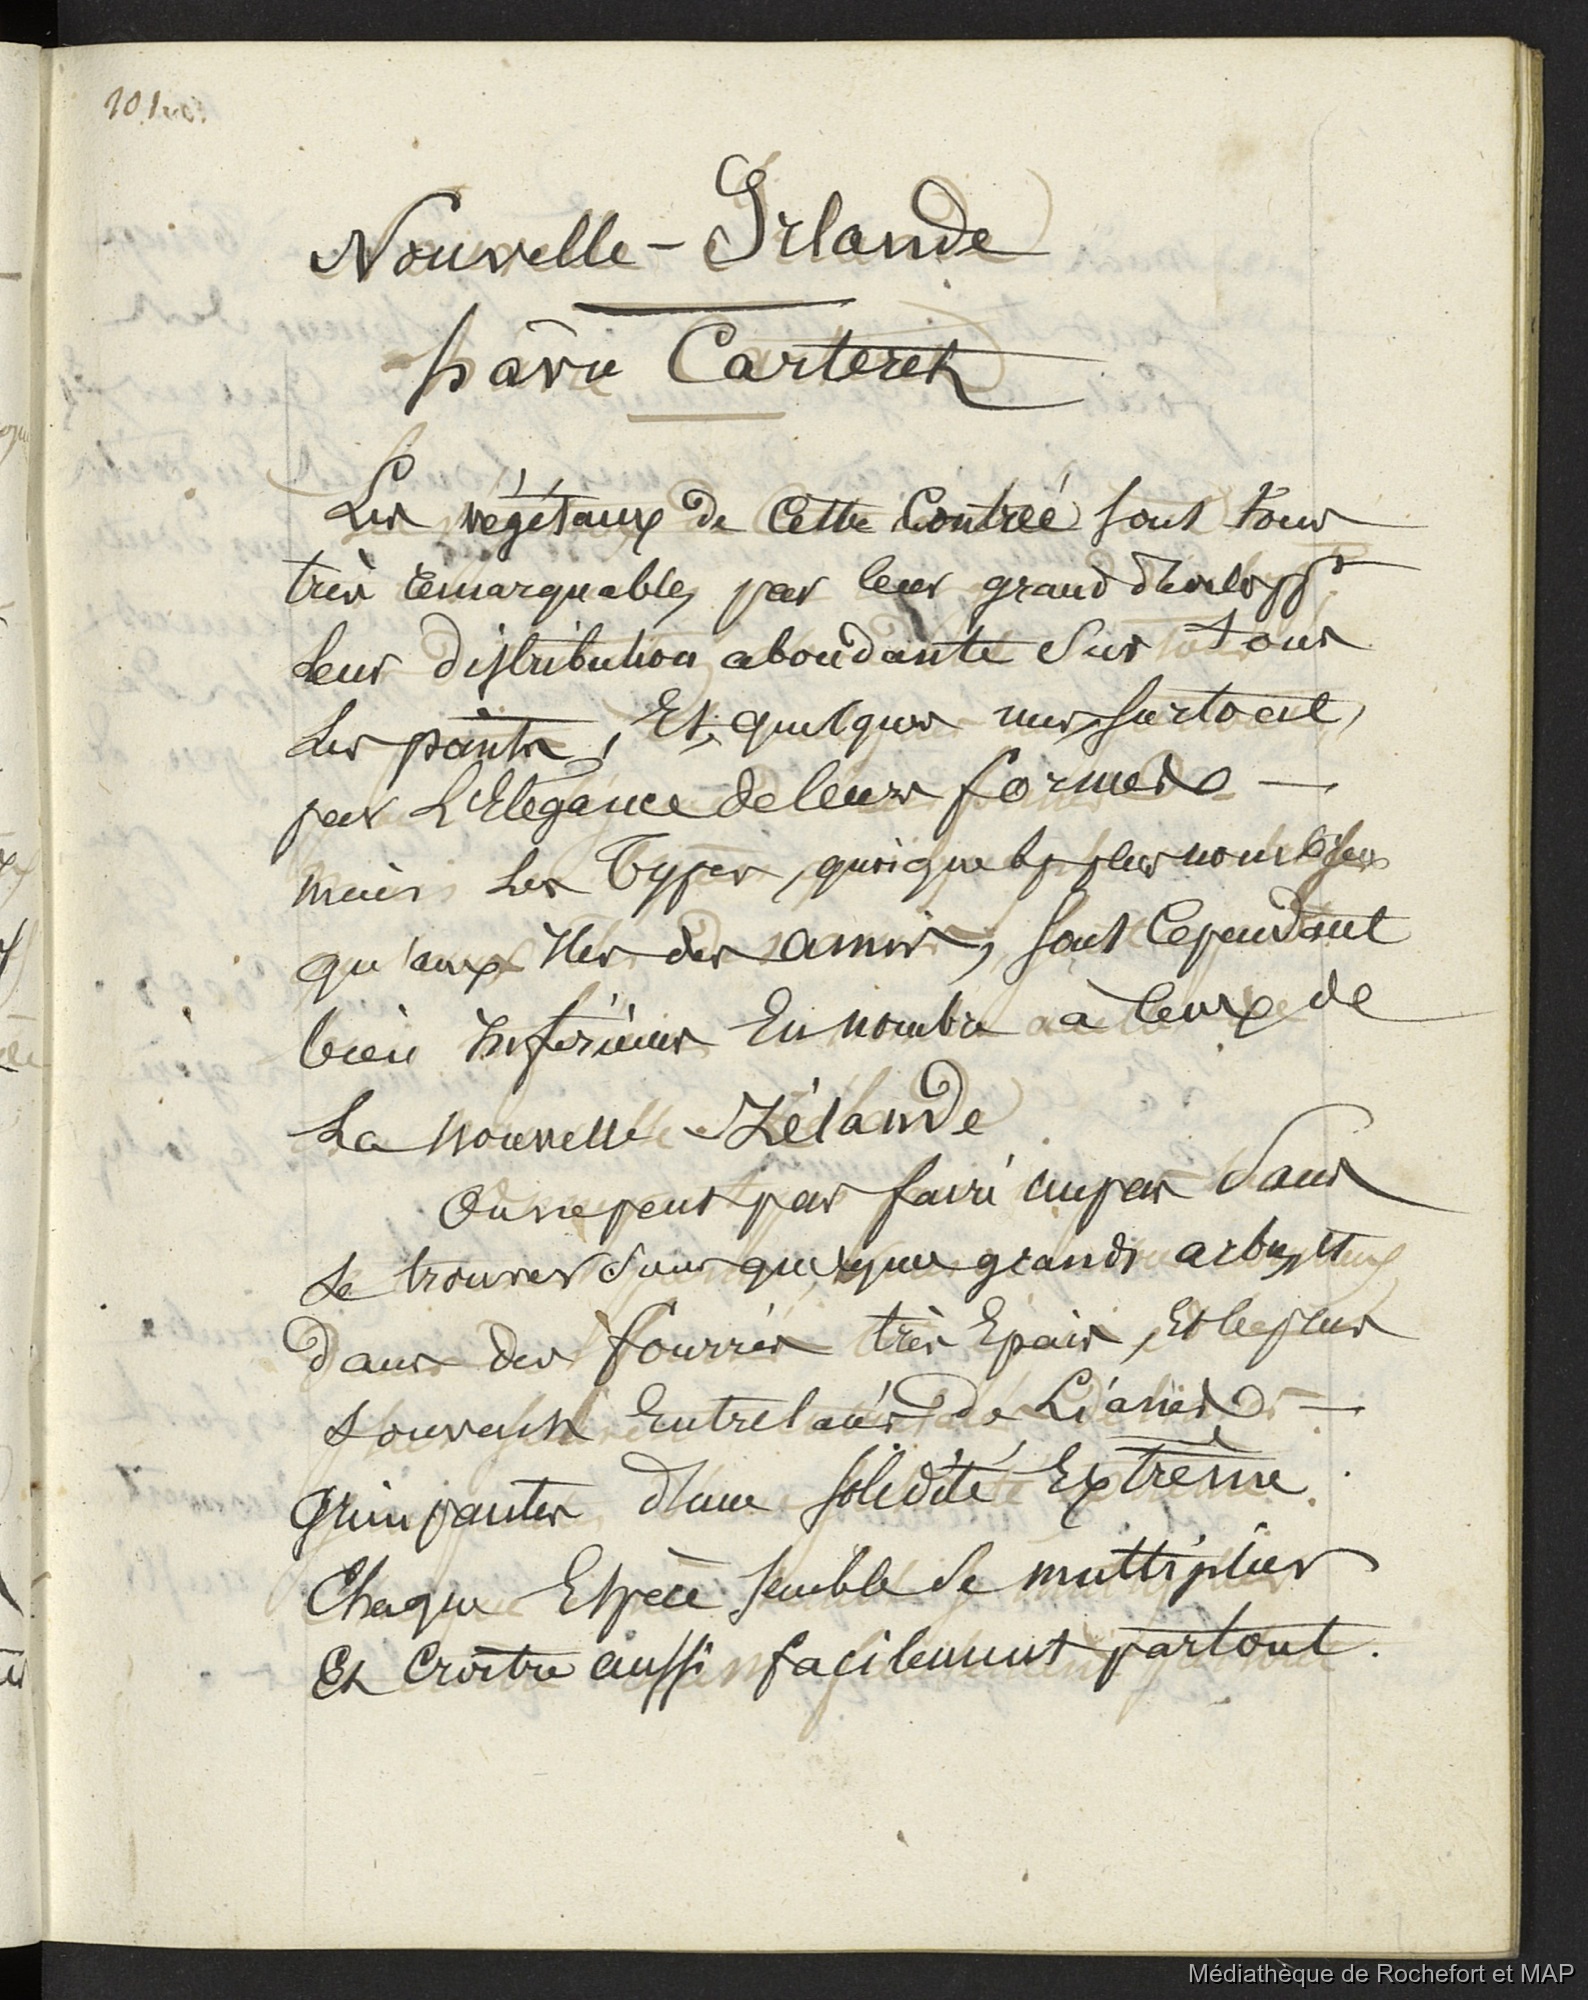 101
Nouvelle-Irlande
hâvre Carteret
Les végétaux de cette contrée sont tous
très remarquables par leur grand dévelopt.
leur distribution abondante sur tous
les points, Et, quelques uns surtout,
par L'Elégance de leurs formes —
mais les Types, quoique plus nombreux
qu'aux Iles des amis, sont cependant
bien inférieurs En nombre à ceux de
La nouvelle-Zélande
On ne peut pas faire un pas sans
se trouver sous quelques grands arbustes
dans des fourrés très Epais, Et le plus
souvent Entrelacés de Lianes —
grimpantes d'une solidité Extrême
Chaque Espèce semble se multiplier
Et croître aussi facilement partout.
Médiathèque de Rochefort et MAP